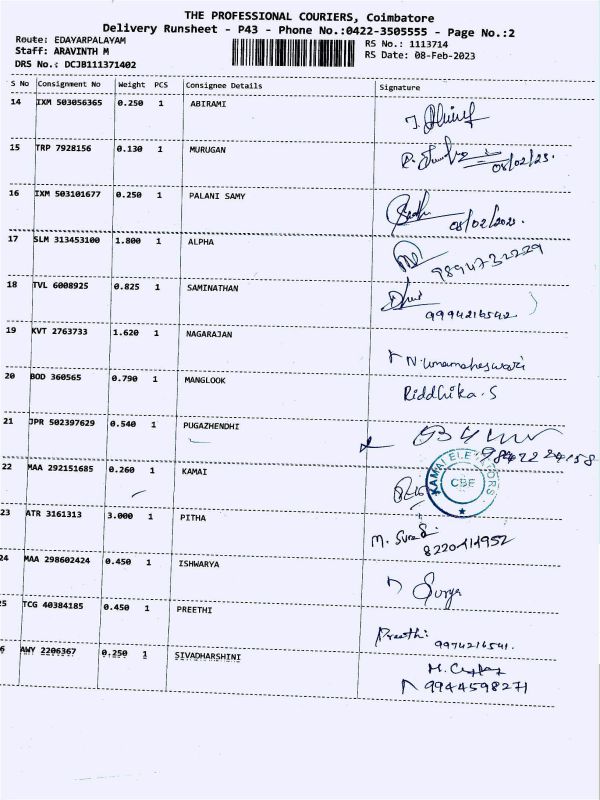 THE PROFESSIONAL COURIERS, Coimbatore
Delivery Runsheet - P43 - Phone No.:0422-3505555 - Page No.:2
Route: EDAYARPALAYAM
Staff: ARAVINTH M
DRS No.: DCJB111371402
RS No.: 1113714
RS Date: 08-Feb-2023
S No Consignment No Weight PCS Consignee Details Signature
14 IXM 503056365 0.250 1 ABIRAMI
15 TRP 7928156 0.130 1 MURUGAN
08/02/23.
16 IXM 503101677 0.250 1 PALANI SAMY
08/02/2023.
17 SLM 313453100 1.800 1 ALPHA
9894732229
18 TVL 6008925 0.825 1 SAMINATHAN
9994216542
19 KVT 2763733 1.620 1 NAGARAJAN
N. Umamaheswari
20 BOD 360565 0.790 1 MANGLOOK
Riddhika. S
21 JPR 502397629 0.540 1 PUGAZHENDHI
22 MAA 292151685 0.260 1 KAMAI
KAMAL ELEVATORS
CBE
23 ATR 3161313 3.000 1 PITHA
24 MAA 298602424 0.450 1 ISHWARYA
Surya
25 TCG 40384185 0.450 1 PREETHI
Preethi
9974216541.
6 AWY 2206367 0.250 1 SIVADHARSHINI
9944598271